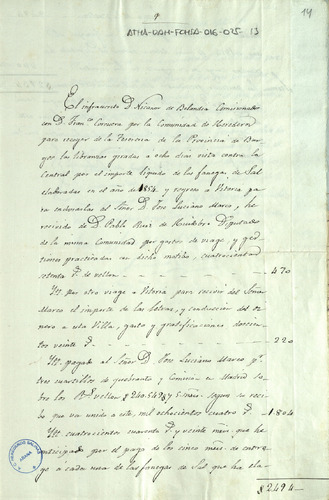 14
ATHA-DAH-FCHSA-016-025-13
El infrascrito D. Nicanor de Belandia Comisionado
con D. Fran.co Cervera por la Comunidad de Herederos
para recoger de la Tesoreria de la Provincia de Bur-
gos las libranzas giradas a ocho dias vista contra la
Central por el importe liquido de las fanegas de Sal
elaboradas en el año de 1854 y regreso a Vitoria pa
ra endosarlas al Señor D. Jose Luciano Marco, he
recivido de D. Pablo Ruiz de Diputado
de la misma Comunidad por gastos de viage, y ges-
tiones practicadas en dicho motivo, cuatrocientos
setenta r.s de vellon - - - - 470
It. por otro viage a Vitoria para recivir del Señor
Marco el importe de las Letras, y conduccion del di-
nero a esta Villa, gasto y gratificaciones doscien-
tos veinte r.s - - - - 220
It. pagado al Señor D. Jose Luciano Marco p.r
tres cuartillos de quebranto y Comision en Madrid
sobre los R.s vellon 240.549 y 5 mrs. segun su reci-
bo que va unido a este, mil ochocientos cuatro r.s - 1.804
It. cuatrocientos noventa r.s y veinte mrs. que he
anticipado por el pago de los cinco mrs. de entre-
go a cada una de las fanegas de Sal que ha ela-
$ 2494 -